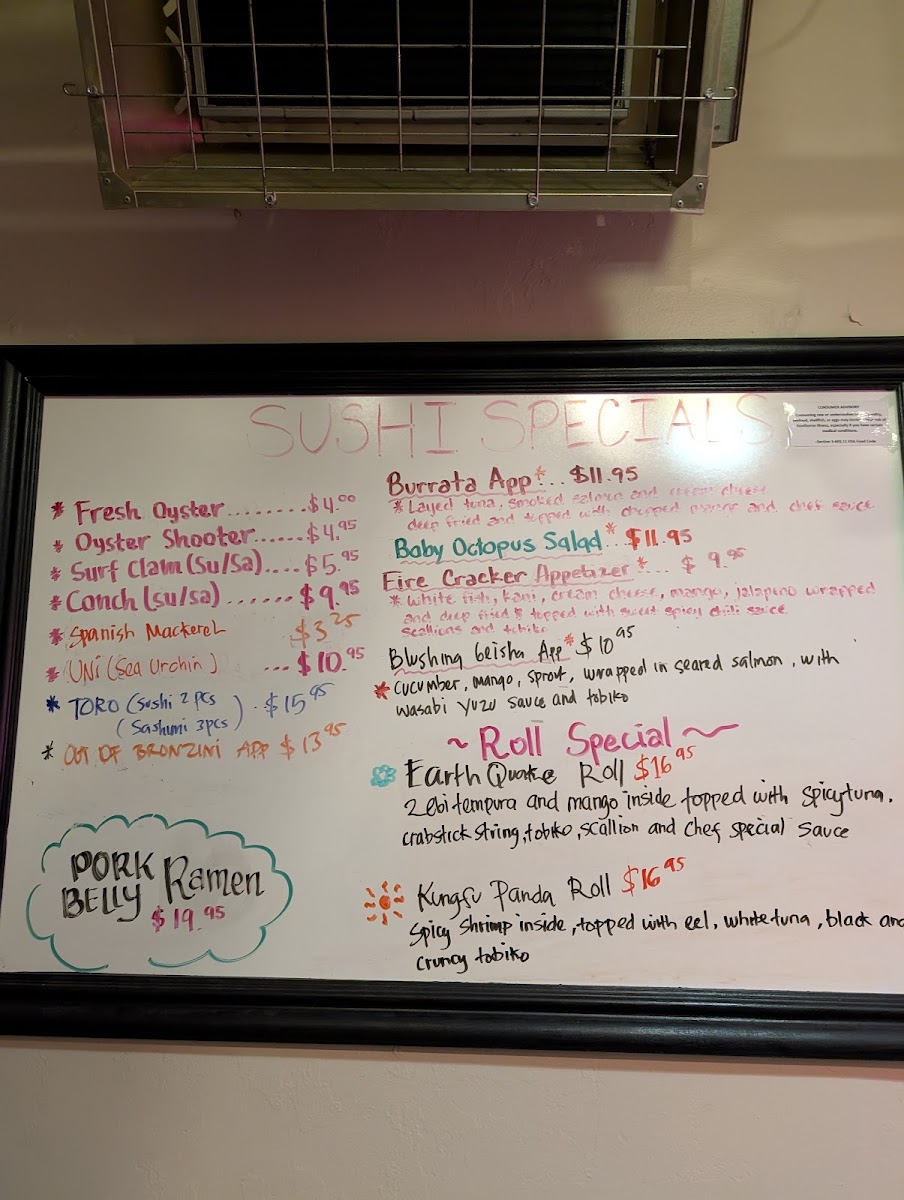 SUSHI SPECIALS
CONSUMER ADVISORY
* Fresh Oyster........$4.00
* Oyster Shooter......$4.95
* Surf Clam (Su/Sa)....$5.95
* Conch (su/sa) ......$9.95
* Spanish Mackerel $3.25
* UNI (Sea Urchin) ...$10.95
* TORO (Sushi 2 pcs) . $15.95
(Sashimi 3pcs)
* OUT OF BRONZINI APP $13.95
PORK BELLY Ramen
$19.95
Burrata App*... $11.95
* Layed tuna, smoked salmon and cream cheese
deep fried and topped with chopped mango and chef sauce
Baby Octopus Salad* $11.95
Fire Cracker Appetizer*... $9.95
* white fish, kani, cream cheese, mango, jalapeno wrapped
and deep fried & topped with sweet spicy chili sauce
scallions and tobiko
Blushing Geisha App* $10.95
* cucumber, mango, sprout, wrapped in seared salmon, with
wasabi yuzu sauce and tobiko
~ Roll Special ~
Earth Quake Roll $16.95
2 ebi tempura and mango inside topped with spicy tuna.
crabstick string, tobiko, scallion and chef special sauce
Kungfu Panda Roll $16.95
Spicy shrimp inside, topped with eel, white tuna, black and
cruncy tobiko